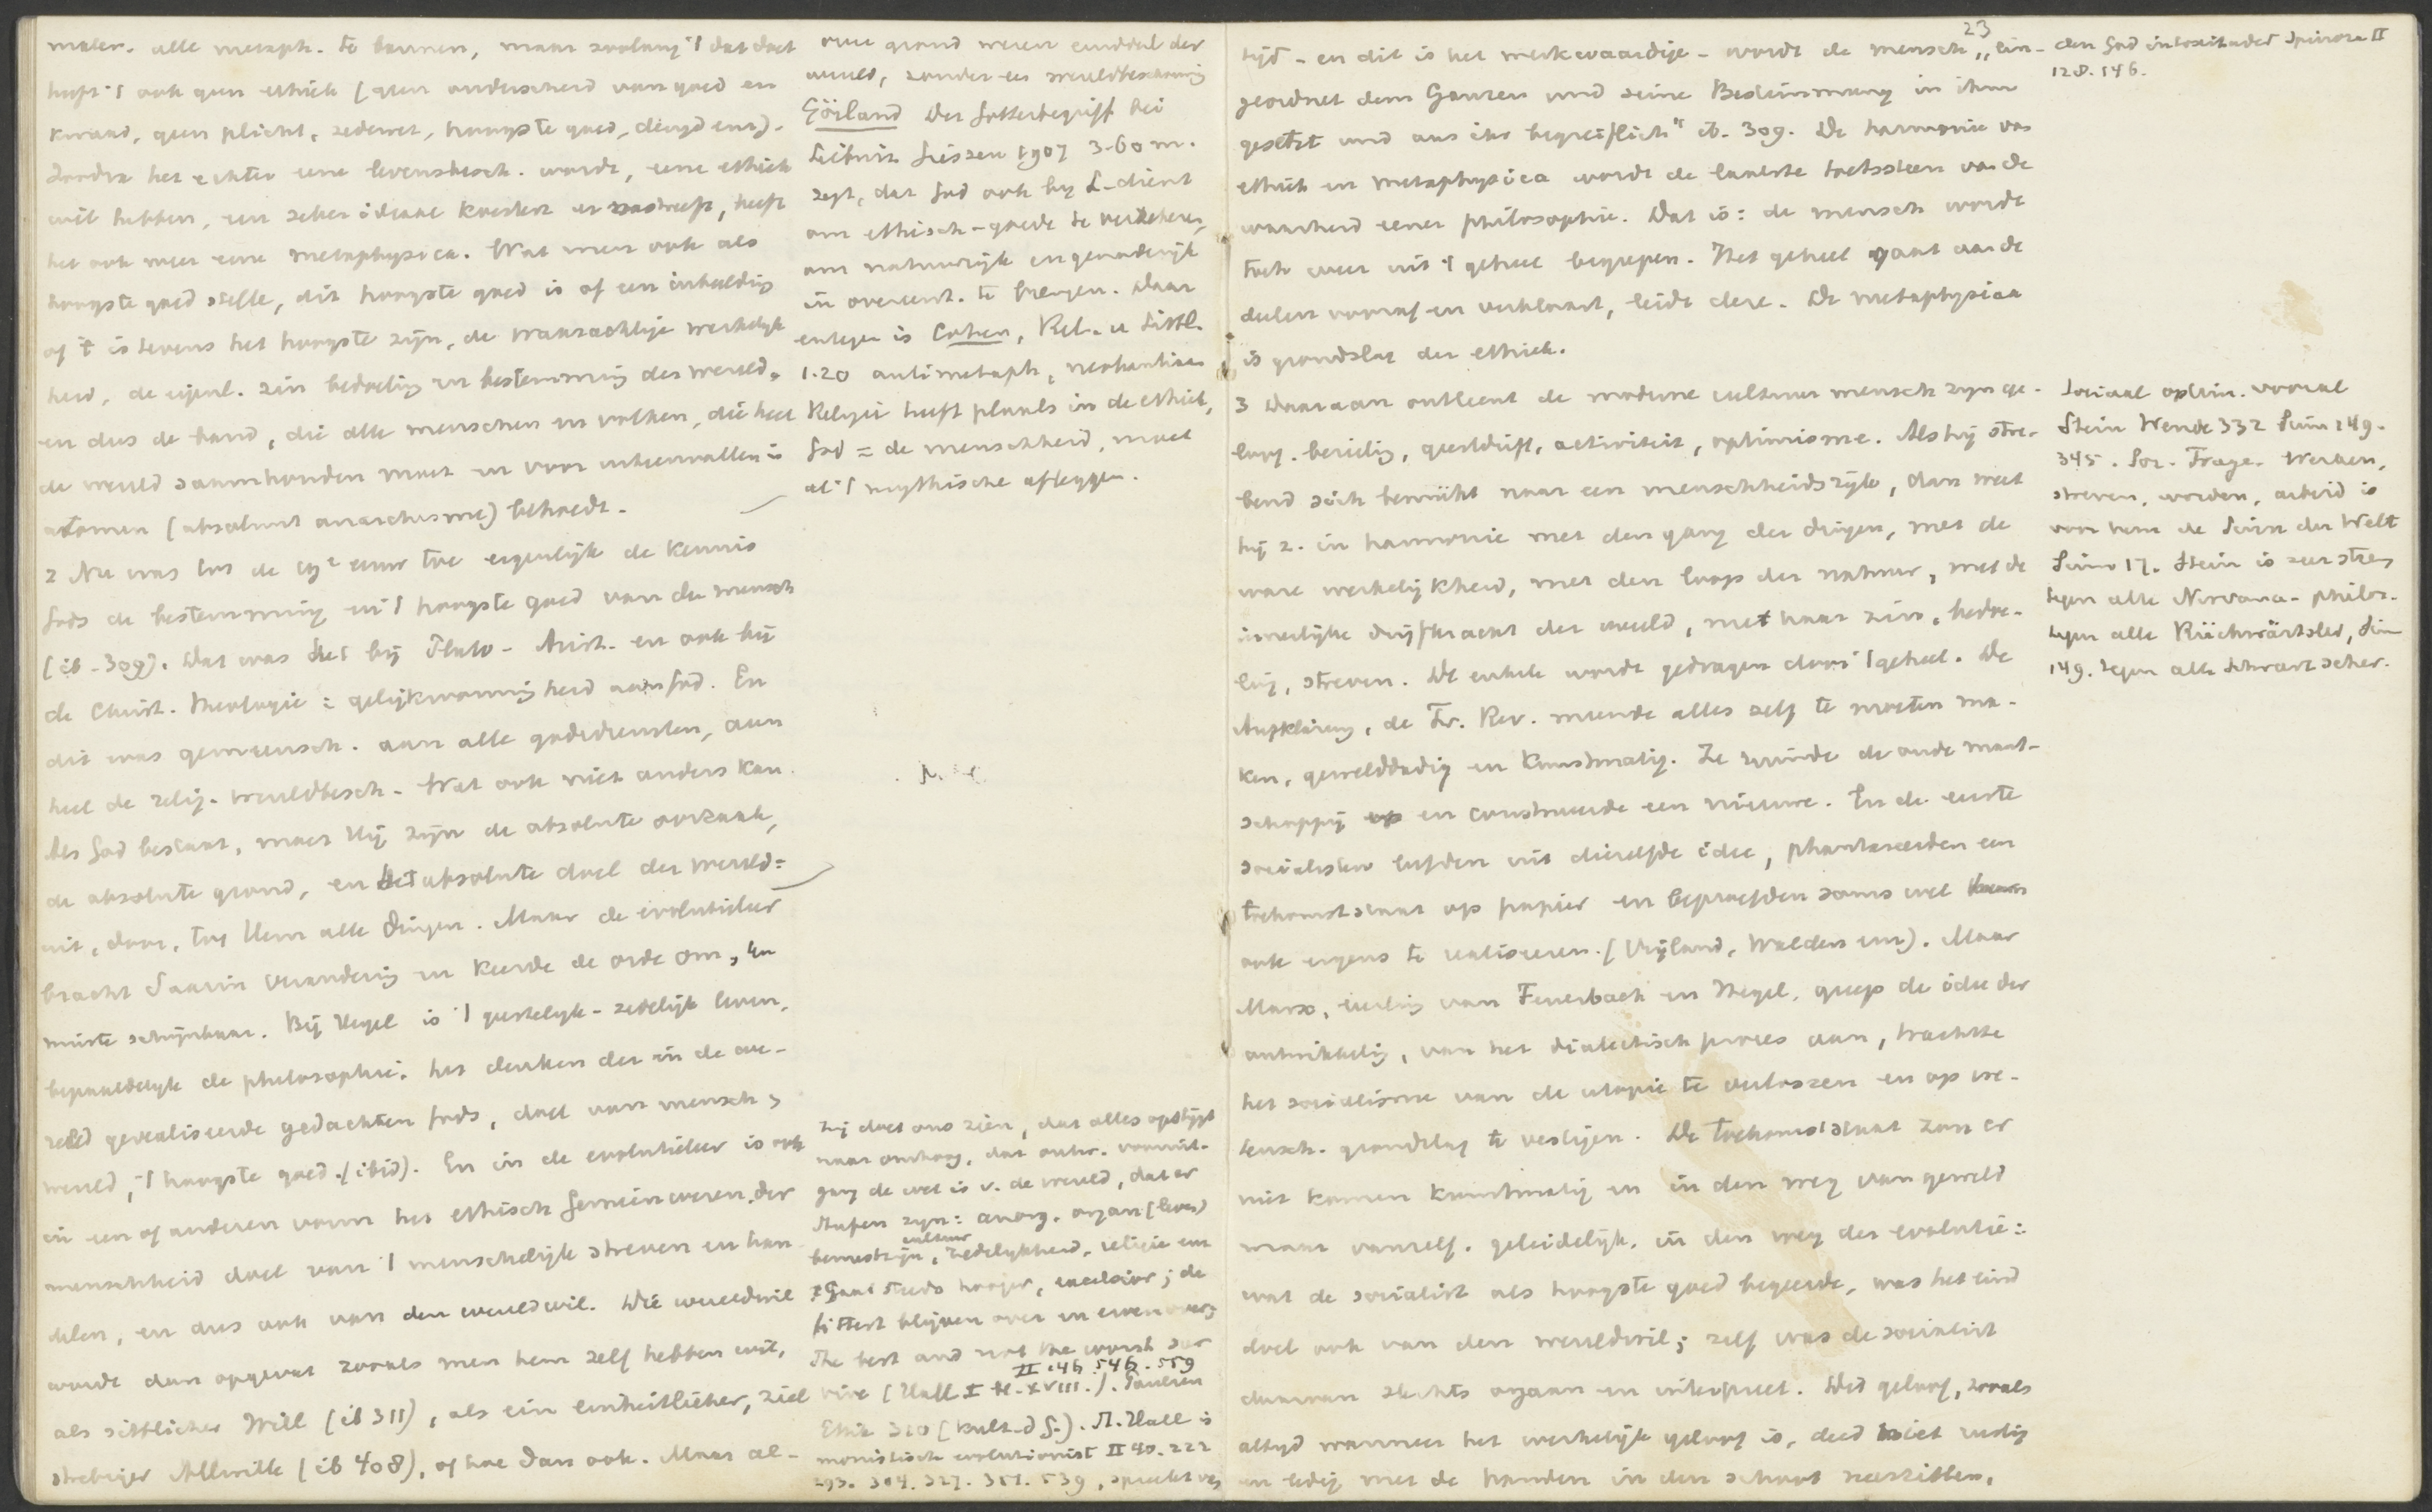 malen. alle metaph. te bannen, maar zoolang 't dat doet
heeft 't ook geen ethiek (geen onderscheid van goed en
kwaad, geen plicht, zedewet, hoogste goed, deugd enz).
Zoodra het echter eene levensbesch. wordt, eene ethiek
wil hebben, een zeker ideaal koestert en nastreeft, heeft
het ook weer eene metaphysica. Wat men ook als
hoogste goed stelle, dit hoogste goed is of een inbeelding
of 't is tevens het hoogste zijn, de waarachtige werkelijk
heid, de eigenl. zin bedoeling en bestemming der wereld,
en dus de band, die alle menschen en volken, die heel
de wereld saamhouden moet en voor uiteenvallen in
atomen (absoluut anarchisme) behoedt.
2 Nu was tot de 19e eeuw toe eigenlijk de kennis
Gods de bestemming en 't hoogste goed van den mensch
(ib. 309). Dat was het bij Plato - Arist. en ook bij
de Christ. theologie: gelijkvormigheid aan God. En
dit was gemeensch. aan alle godsdiensten, aan
heel de relig. wereldbesch. Wat ook niet anders kan.
Als God bestaat, moet Hij zijn de absolute oorzaak,
de absolute grond, en het absolute doel der wereld:
uit, door, tot Hem alle dingen. Maar de evolutieleer
bracht daarin verandering en keerde de orde om, ten
minste schijnbaar. Bij Hegel is 't geestelijk-zedelijk leven,
bepaaldelijk de philosophie, het denken der in de we-
reld gerealiseerde gedachten Gods, doel van mensch,
wereld, 't hoogste goed (ibid). En in de evolutieleer is ook
in een of anderen vorm het ethisch Gemeinwesen der
menschheid doel van 't menschelijk streven en han
delen, en dus ook van den wereldwil. Die wereldwil
wordt dan opgevat zooals men hem zelf hebben wil,
als sittlicher Will (ib 311), als ein einheitlicher, ziel
strebiger Allwille (ib 408), of hoe dan ook. Maar al-
onze grond weer einddoel der
wereld, zonder een wereldbeschouwing
Görland Der Gottesbegriff bei
Leibniz Giessen 1907 3.60 m.
zegt, dat God ook bij L. dient
om ethisch-goede te verzekeren,
om natuurrijk en genaderijk
in overeenst. te brengen. Daar
entegen is Cohen, Rel. u Sittl.
1.20 antimetaph, neokantiaan
Religie heeft plaats in de ethiek,
God = de menschheid, moet
al 't mythische afleggen.
Hij doet ons zien, dat alles opstijgt
naar omhoog, dat ontw. vooruit-
gang de wet is v. de wereld, dat er
Stufen zijn: anorg. organ (leven)
bewustzijn, cultuur, zedelijkheid, religie enz
't Gaat steeds hooger, excelsior; de
fittest blijven over en
the best and not the worst sur
vive (Hall I H. XVIII.). II .46 546. 559 Paulsen
Ethik 320 (Kult. d G.). St. Hall is
monistisch evolutionist II 40. 222
293. 304. 327. 351. 539, spreekt van
23
tijd - en dit is het merkwaardige - wordt de mensch „ein-
geordnet dem Ganzen und seine Bestimmung in ihm
gesetzt und aus ihr begreiflich" ib. 309. De harmonie van
ethiek en metaphysica wordt de laatste toetssteen van de
waarheid eener philosophie. Dat is: de mensch wordt
toch weer uit 't geheel begrepen. Het geheel gaat aan de
deelen vooraf en verklaart, leidt deze. De metaphysica
is grondslag der ethiek.
3 Daaraan ontleent de moderne cultuur mensch zijn ge-
loof. bezieling, geestdrift, activiteit, optimisme. Als hij stre-
bend sich bemüht naar een menschheidsrijk, dan weet
hij z. in harmonie met den gang der dingen, met de
ware werkelijkheid, met den loop der natuur, met de
innerlijke drijfkracht der wereld, met haar zin, bedoe-
ling, streven. De enkele wordt gedragen door 't geheel. De
Aufklärung, de Fr. Rev. meende alles zelf te moeten ma-
ken, gewelddadig en kunstmatig. Ze ruimde de oude maat-
schappij op en construeerde een nieuwe. En de eerste
socialisten leefden uit diezelfde idee, phantaseerden een
toekomststaat op papier en beproefden soms wel
ook ergens te realiseeren. (Vrijland, Walden enz). Maar
Marx, leerling van Feuerbach en Hegel, greep de idee der
ontwikkeling, van het dialectisch proces aan, trachtte
het socialisme van de utopie te verlossen en op we-
tensch. grondslag te vestigen. De toekomststaat zou er
niet komen kunstmatig en in den weg van geweld
maar vanzelf. geleidelijk. in den weg der evolutie:
wat de socialist als hoogste goed begeerde, was het eind
doel ook van den wereldwil; zelf was de socialist
daarvan slechts orgaan en interpreet. Dit geloof, zooals
altijd wanneer het werkelijk geloof is, deed niet rustig
en ledig met de handen in den schoot neerzitten.
den God Spinoza II
128. 146.
Sociaal optim. vooral
Stein Wende 332 Sinn 149.
345. Soz. Frage. Werken,
streven, worden, arbeid is
voor hem de Sinn der Welt
Sinn 17. Stein is zeer streng
tegen alle Nirvana-philos.
tegen alle Rückwärtslerei, Sinn
149. tegen alle Schwarzseher.